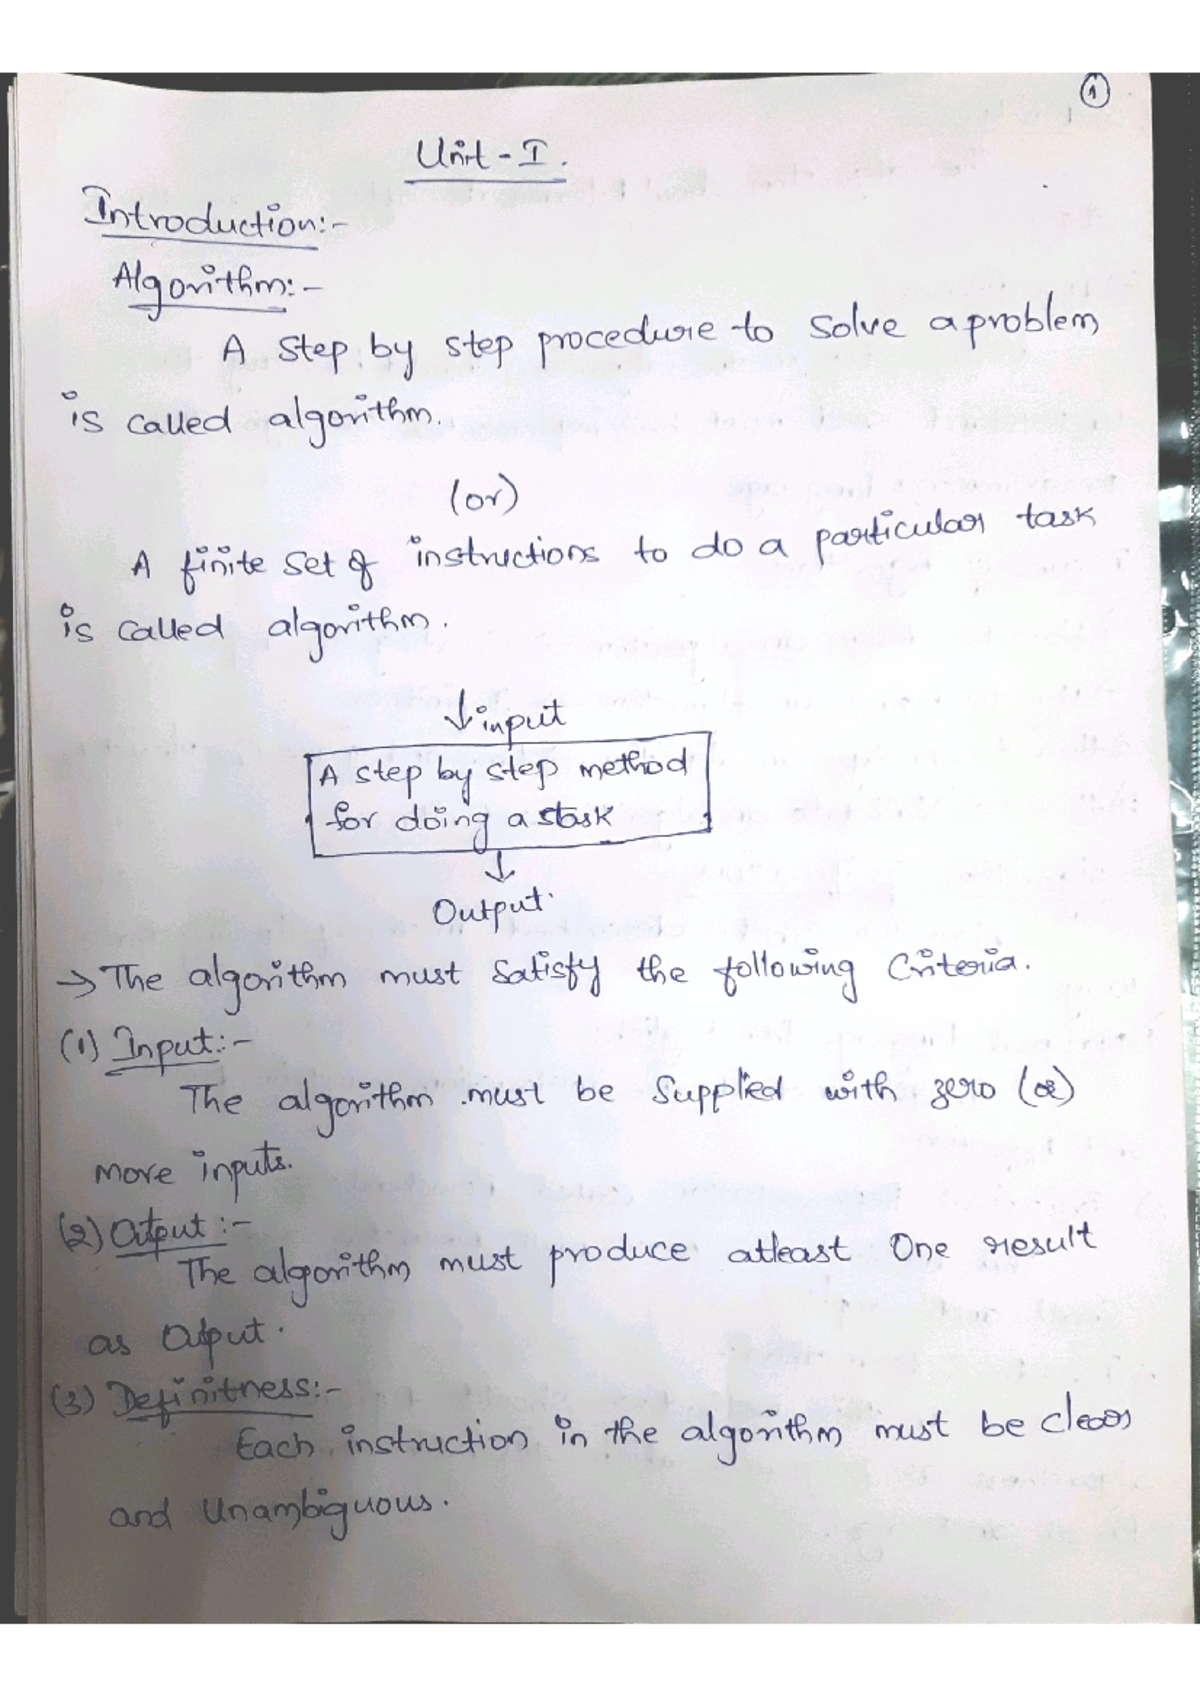 1
Unit - I.
Introduction:-
Algorithm:-
A step by step procedure to solve a problem
is called algorithm.
(or)
A finite set of instructions to do a particular task
is called algorithm.
↓ input
A step by step method
for doing a task
↓
Output.
→ The algorithm must satisfy the following Criteria.
(1) Input:-
The algorithm must be Supplied with zero (or)
more inputs.
(2) Output:-
The algorithm must produce atleast One result
as Output.
(3) Definitness:-
Each instruction in the algorithm must be clear
and Unambiguous.